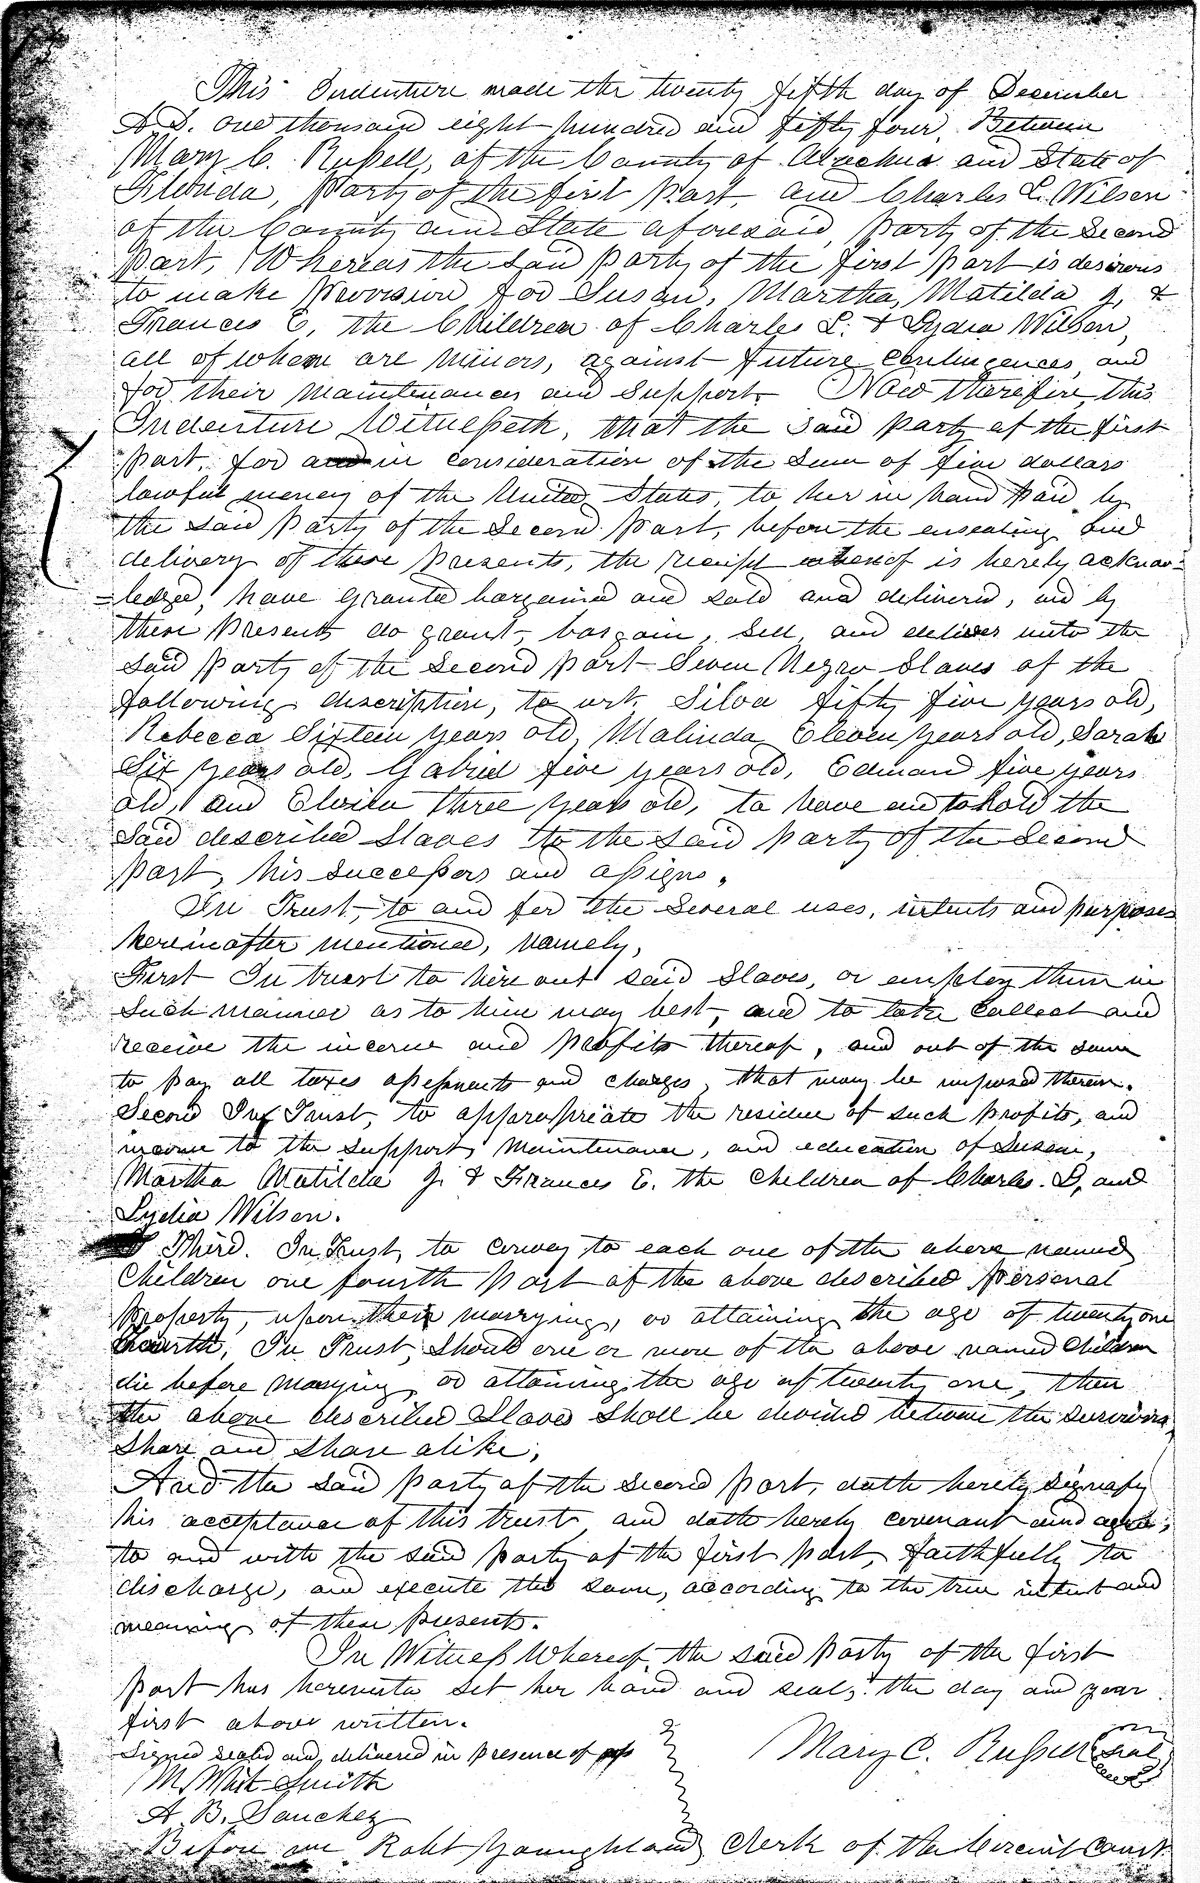 This Indenture made the twenty fifth day of December
A.D. one thousand eight hundred and fifty four, Between
Mary C. Russell, of the County of Alachua and State of
Florida, Party of the first Part, and Charles L. Wilson
of the County and State aforesaid, Party of the Second
Part, Whereas the said Party of the first Part is desirous
to make Provision for Susan, Martha, Matilda J, &
Frances E, the Children of Charles L. & Lydia Wilson,
all of whom are Minors, against future contingences, and
for their maintenances and support. Now therefore, this
Indenture Witnesseth, that the said party of the first
Part, for and in consideration of the Sum of five dollars
lawful money of the United States, to her in hand Paid by
the said Party of the Second Part, before the ensealing and
delivery of these Presents, the receipt whereof is hereby acknow=
=ledged, have granted bargained and sold and delivered, and by
these Presents do grant, bargain, sell, and deliver unto the
said Party of the Second Part Seven Negro Slaves of the
following description, to wit, Silva fifty five years old,
Rebecca Sixteen years old, Malinda Eleven years old, Sarah
Six years old, Gabriel five years old, Edmand five years
old, and Elvira three years old, to have and to hold the
said described Slaves to the said Party of the Second
Part, his successors and assigns.
In Trust, to and for the several uses, intents and purposes
hereinafter mentioned, namely,
First In trust to hire out said Slaves, or employ them in
such manner as to him may best, and to take Collect and
receive the income and Profits thereof, and out of the same
to pay all taxes assessments and charges, that may be imposed thereon.
Second In Trust, to appropriate the residue of such profits, and
income to the support, maintenance, and education of Susan,
Martha Matilda J. & Frances E. the Children of Charles L, and
Lydia Wilson.
Third. In Trust, to convey to each one of the above named
Children one fourth Part of the above described Personal
Property, upon their marrying, or attaining the age of twenty one
Fourth, In Trust, Should one or more of the above named Children
die before marrying, or attaining the age of twenty one, then
the above described Slaves shall be divided between the survivors,
Share and Share alike,
And the said Party of the Second Part, doth hereby signify
his acceptance of this trust and doth hereby covenant and agree,
to and with the said party of the first part, faithfully to
discharge, and execute the same, according to the true intent and
meaning of these presents.
In Witness Whereof, the said Party of the first
Part has hereunto set her hand and seal, the day and year
first above written.
Signed sealed and delivered in presence of
M. Whit Smith
A. B. Sanchez
Mary C. Russell Seal
Before me Robt Youngblood Clerk of the Circuit Court